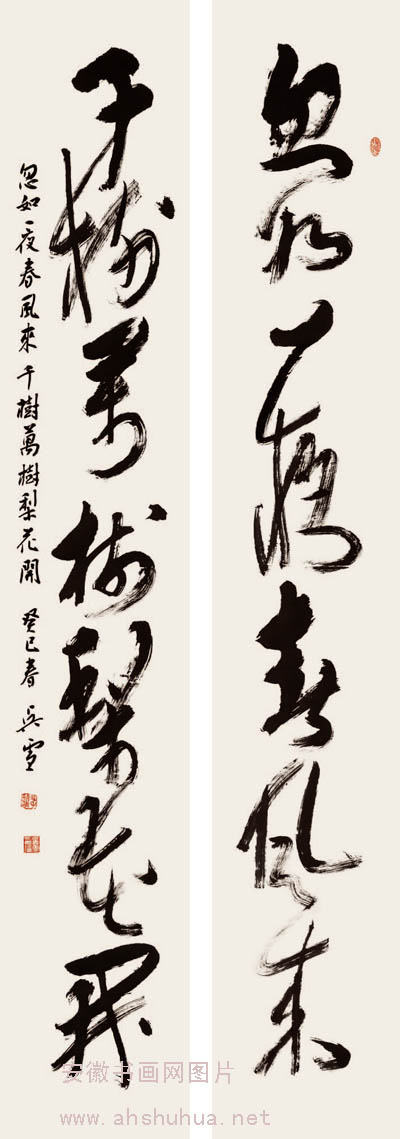 忽如一夜春风来
千树万树梨花开
忽如一夜春風來 千樹萬樹梨花開 癸巳春 吴雪
安徽书画网图片
www.ahshuhua.net